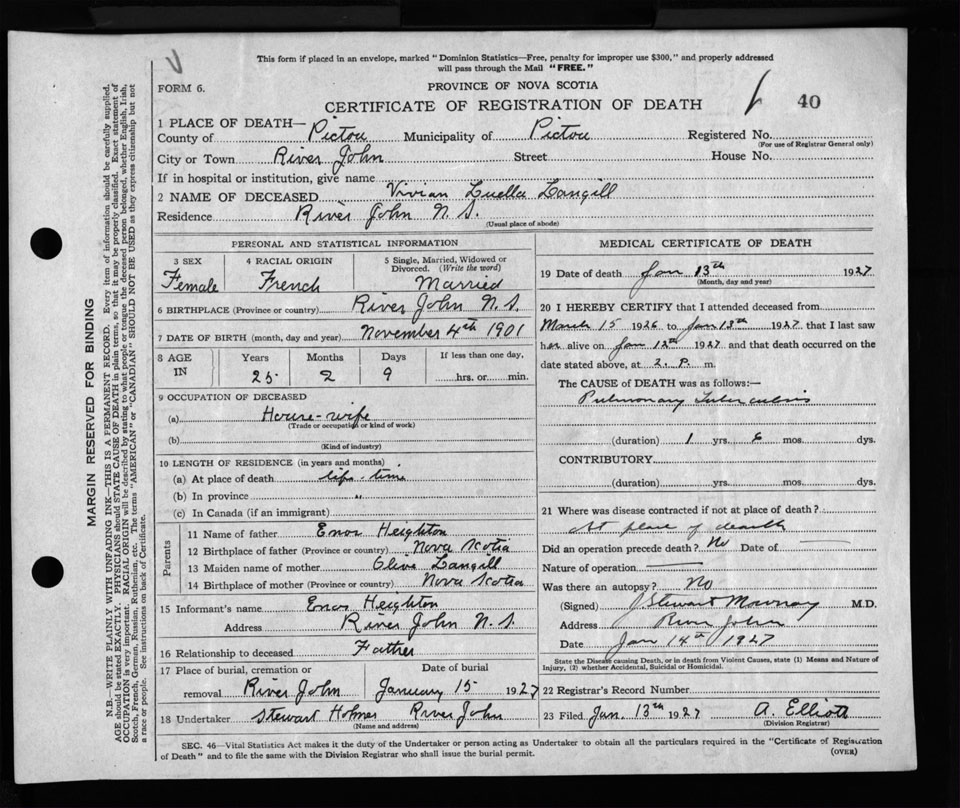 This form if placed in an envelope, marked "Dominion Statistics—Free, penalty for improper use $300," and properly addressed
will pass through the Mail "FREE."
FORM 6.
PROVINCE OF NOVA SCOTIA
CERTIFICATE OF REGISTRATION OF DEATH
40
1 PLACE OF DEATH—
County of Pictou Municipality of Pictou Registered No.
(For use of Registrar General only)
City or Town River John Street House No.
If in hospital or institution, give name
2 NAME OF DECEASED Vivian Luella Langill
Residence River John N. S.
(Usual place of abode)
PERSONAL AND STATISTICAL INFORMATION
3 SEX 4 RACIAL ORIGIN 5 Single, Married, Widowed or
Divorced. (Write the word)
Female French Married
6 BIRTHPLACE (Province or country) River John N. S.
7 DATE OF BIRTH (month, day and year) November 4th 1901
8 AGE IN Years Months Days If less than one day,
25 2 9 hrs. or min.
9 OCCUPATION OF DECEASED
(a) House-wife
(Trade or occupation or kind of work)
(b)
(Kind of industry)
10 LENGTH OF RESIDENCE (in years and months)
(a) At place of death life-time
(b) In province "
(c) In Canada (if an immigrant)
Parents
11 Name of father Enos Heighton
12 Birthplace of father (Province or country) Nova Scotia
13 Maiden name of mother Olive Langill
14 Birthplace of mother (Province or country) Nova Scotia
15 Informant's name Enos Heighton
Address River John N. S.
16 Relationship to deceased Father
17 Place of burial, cremation or Date of burial
removal River John January 15 1927
18 Undertaker Stewart Holmes River John
(Name and address)
MEDICAL CERTIFICATE OF DEATH
19 Date of death Jan 13th 1927
(Month, day and year)
20 I HEREBY CERTIFY that I attended deceased from
March 15 1926 to Jan 13th 1927 that I last saw
her alive on Jan 12th 1927 and that death occurred on the
date stated above, at 2. P. m.
The CAUSE of DEATH was as follows:—
Pulmonary Tuberculosis
(duration) 1 yrs. 6 mos. dys.
CONTRIBUTORY
(duration) yrs. mos. dys.
21 Where was disease contracted if not at place of death?
At place of death
Did an operation precede death? No Date of
Nature of operation
Was there an autopsy? No
(Signed) Stewart Murray M.D.
Address River John
Date Jan 14th 1927
State the Disease causing Death, or in death from Violent Causes, state (1) Means and Nature of
Injury, (2) whether Accidental, Suicidal or Homicidal.
22 Registrar's Record Number
23 Filed Jan. 13th 1927 A. Elliott
(Division Registrar)
SEC. 46—Vital Statistics Act makes it the duty of the Undertaker or person acting as Undertaker to obtain all the particulars required in the "Certificate of Registration
of Death" and to file the same with the Division Registrar who shall issue the burial permit.
(OVER)
MARGIN RESERVED FOR BINDING
N.B.—WRITE PLAINLY WITH UNFADING INK—THIS IS A PERMANENT RECORD. Every item of information should be carefully supplied.
AGE should be stated EXACTLY. PHYSICIANS should STATE CAUSE OF DEATH in plain terms, so that it may be properly classified. Exact statement of
OCCUPATION is very important. RACIAL ORIGIN will be described by stating to what people or tongue the deceased person belonged, whether English, Irish,
Scotch, French, German, Russian, Ruthenian, etc. The terms "AMERICAN" or "CANADIAN" SHOULD NOT BE USED as they express citizenship but not
a race or people. See instructions on back of Certificate.